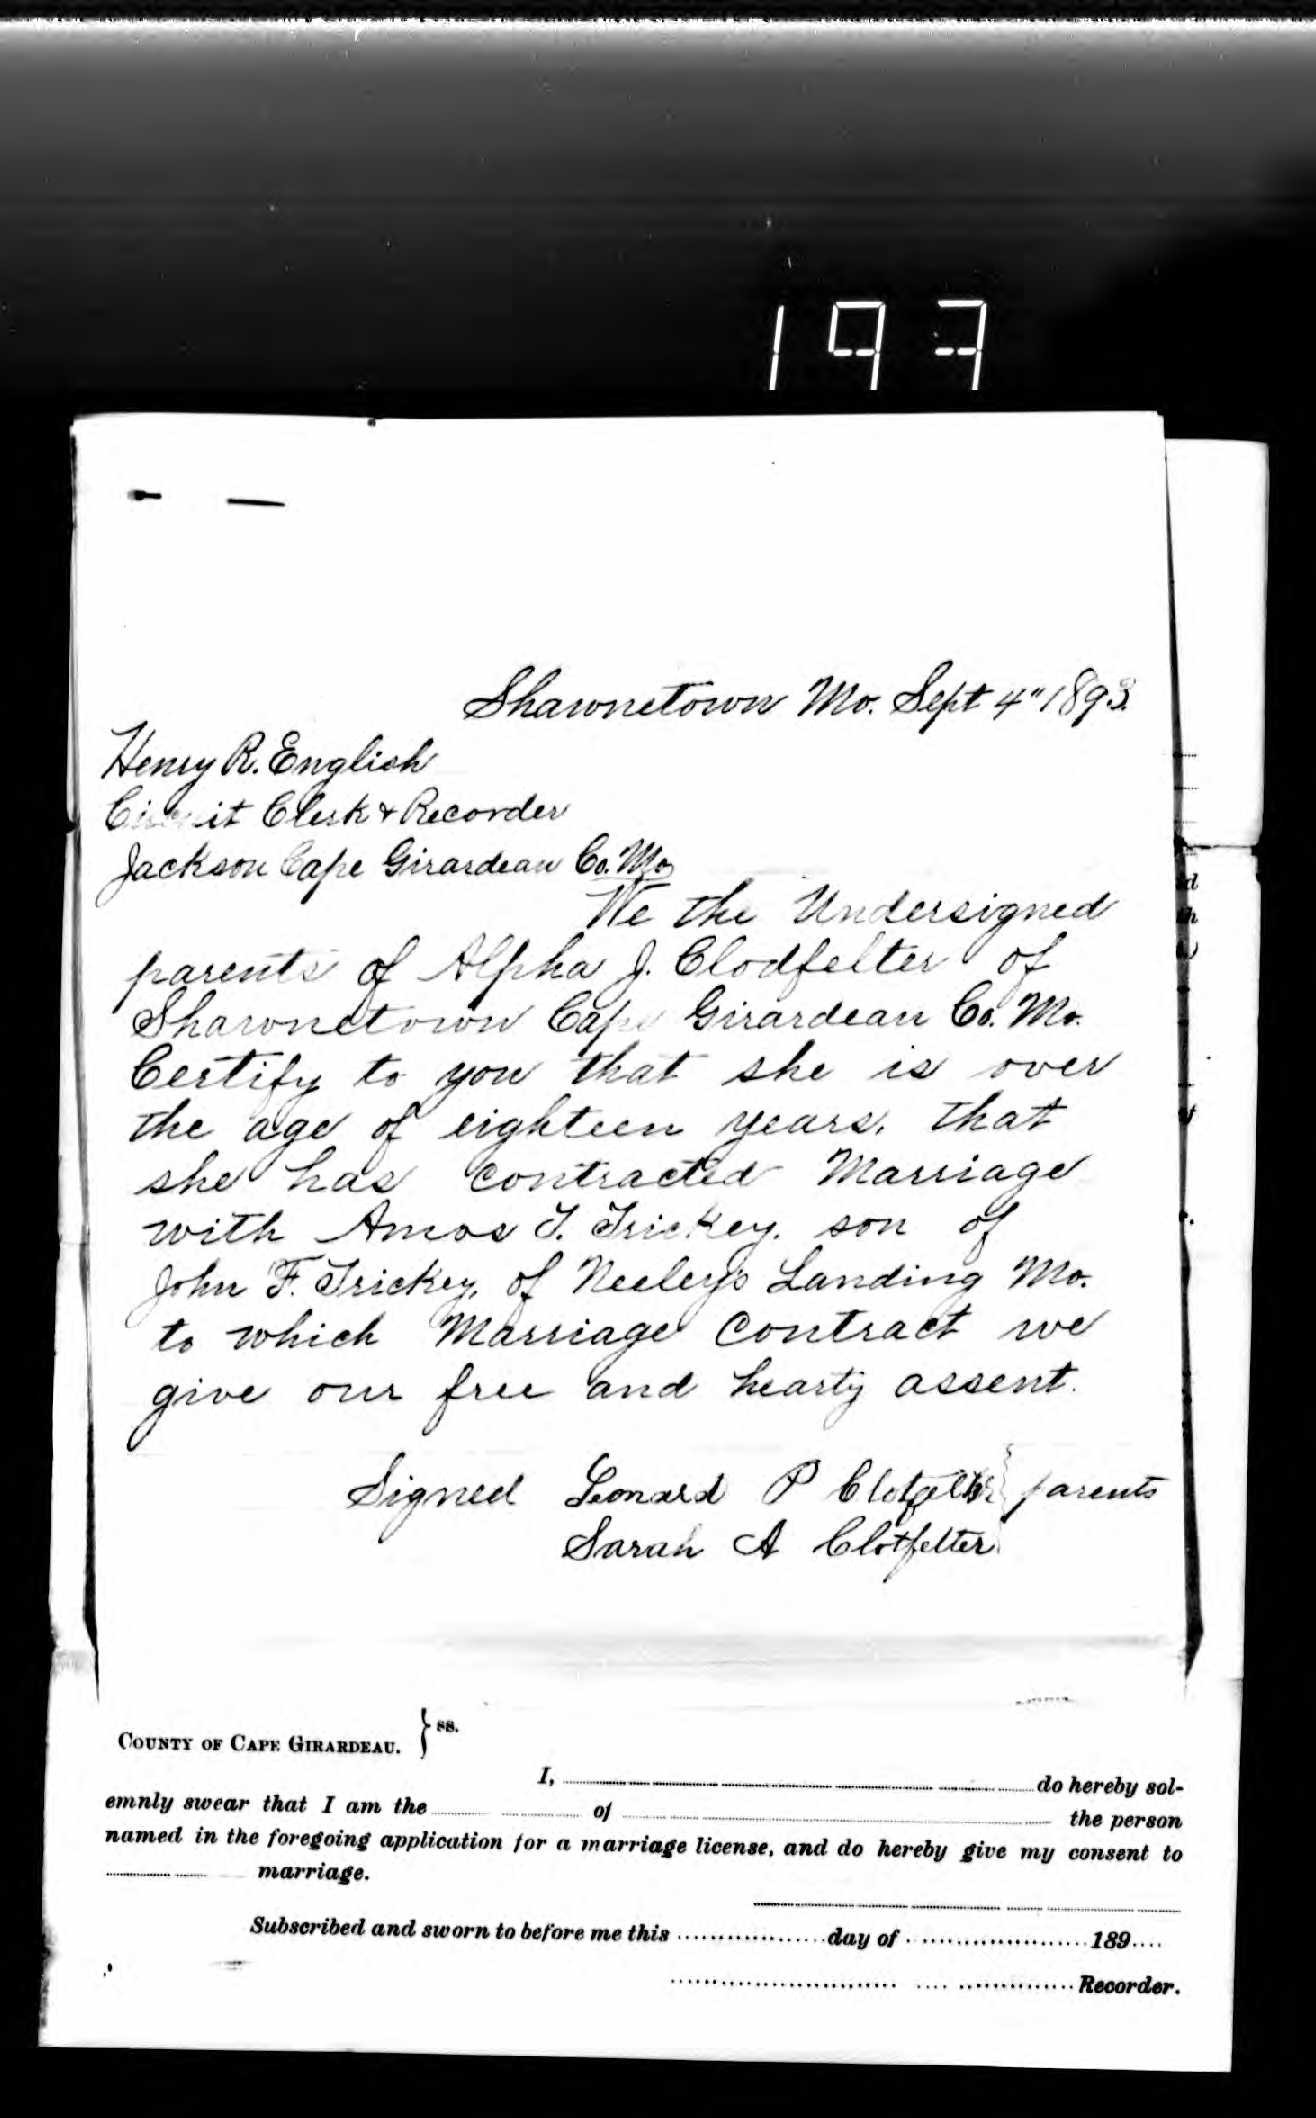 197
Shawnetown Mo. Sept 4" 1893.
Henry R. English
Circuit Clerk & Recorder
Jackson Cape Girardeau Co. Mo
We the Undersigned
parents of Alpha J. Clodfelter of
Shawnetown Cape Girardeau Co. Mo.
Certify to you that she is over
the age of eighteen years, that
she has contracted Marriage
with Amos T. Trickey, son of
John F. Trickey, of Neeley's Landing Mo.
to which Marriage Contract we
give our free and hearty assent.
Signed Leonard P Clotfelter } parents
Sarah A Clotfelter
COUNTY OF CAPE GIRARDEAU. } ss.
I, do hereby sol-
emnly swear that I am the of the person
named in the foregoing application for a marriage license, and do hereby give my consent to
marriage.
Subscribed and sworn to before me this day of 189
Recorder.